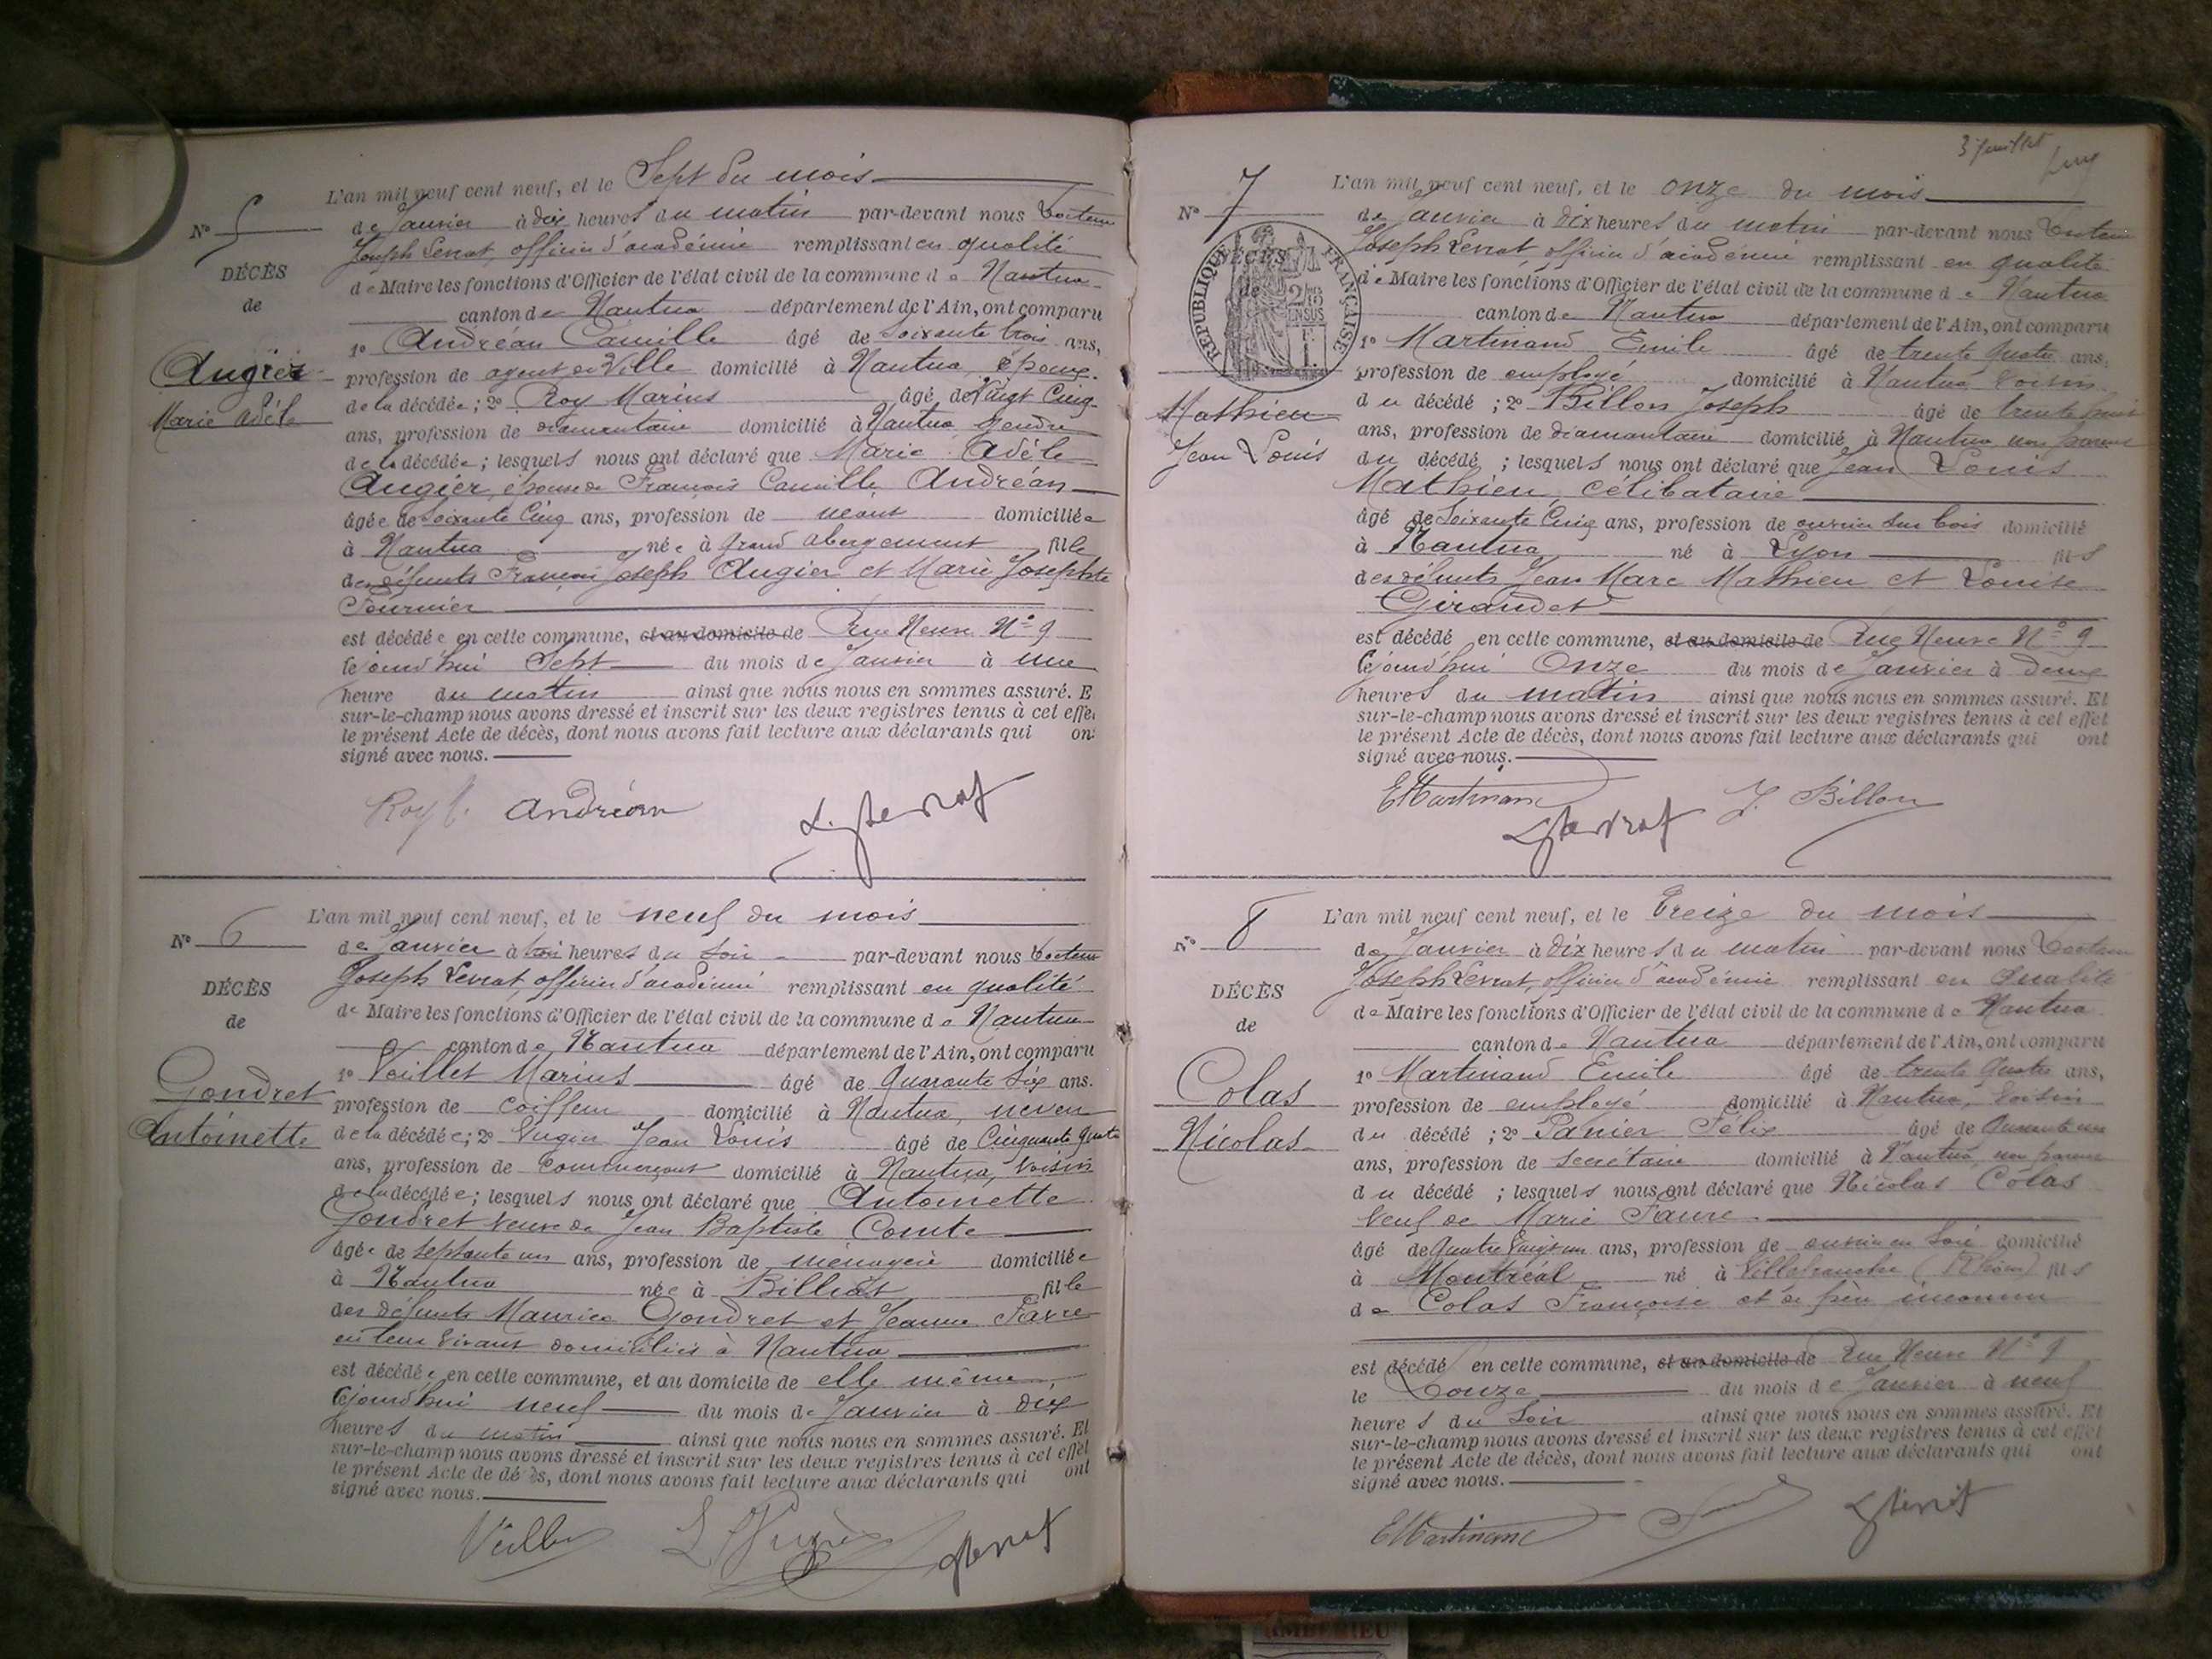 L'an mil neuf cent neuf, et le Sept du mois
N° 5
de Janvier à dix heures du matin par-devant nous Docteur
Joseph Levrat, officier d'académie remplissant en qualité
DÉCÈS
de Maire les fonctions d'Officier de l'état civil de la commune de Nantua
de
canton de Nantua département de l'Ain, ont comparu
1° Andréan Camille âgé de Soixante trois ans,
Augier
profession de agent de Ville domicilié à Nantua, époux
Marie Adèle
de la décédée ; 2° Roy Marius âgé de Vingt Cinq
ans, profession de diamantaire domicilié à Nantua gendre
de la décédée ; lesquels nous ont déclaré que Marie Adèle
Augier, épouse de François Camille Andréan
âgée de Soixante Cinq ans, profession de néant domiciliée
à Nantua née à Grand Abergement fille
des défunts François Joseph Augier et Marie Josephte
Fournier
est décédée en cette commune, et au domicile de Rue Neuve N° 9
cejourd'hui Sept du mois de Janvier à une
heure du matin ainsi que nous nous en sommes assuré. E
sur-le-champ nous avons dressé et inscrit sur les deux registres tenus à cet effe
le présent Acte de décès, dont nous avons fait lecture aux déclarants qui on
signé avec nous.
Roy Andréan Levrat
L'an mil neuf cent neuf, et le neuf du mois
N° 6
de Janvier à trois heures du soir par-devant nous Docteur
Joseph Levrat, officier d'académie remplissant en qualité
DÉCÈS
de Maire les fonctions d'Officier de l'état civil de la commune de Nantua
de
canton de Nantua département de l'Ain, ont comparu
1° Veuillet Marius âgé de Quarante Six ans.
Gondret
profession de coiffeur domicilié à Nantua, neveu
Antoinette
de la décédée ; 2° Jean Louis âgé de Cinquante Quatre
ans, profession de Commerçant domicilié à Nantua, voisin
de la décédée ; lesquels nous ont déclaré que Antoinette
Gondret veuve de Jean Baptiste Comte
âgée de septante un ans, profession de ménagère domiciliée
à Nantua née à Billiat fille
des défunts Maurice Gondret et Jeanne Favre
en leur vivant domiciliés à Nantua
est décédée en cette commune, et au domicile de elle même
cejourd'hui neuf du mois de Janvier à dix
heures du matin ainsi que nous nous en sommes assuré. Et
sur-le-champ nous avons dressé et inscrit sur les deux registres tenus à cet effet
le présent Acte de décès, dont nous avons fait lecture aux déclarants qui ont
signé avec nous.
Levrat
3 Juillet
L'an mil neuf cent neuf, et le onze du mois
N° 7
de Janvier à dix heures du matin par-devant nous Docteur
Joseph Levrat, officier d'académie remplissant en qualité
DÉCÈS
de
RÉPUBLIQUE FRANÇAISE
de Maire les fonctions d'Officier de l'état civil de la commune de Nantua
canton de Nantua département de l'Ain, ont comparu
1° Martinand Emile âgé de trente Quatre ans,
profession de employé domicilié à Nantua voisin
Mathieu
du décédé ; 2° Billon Joseph âgé de trente huit
Jean Louis
ans, profession de diamantaire domicilié à Nantua non parent
du décédé ; lesquels nous ont déclaré que Jean Louis
Mathieu, célibataire
âgé de Soixante Cinq ans, profession de ouvrier sur bois domicilié
à Nantua né à Lyon fils
des défunts Jean Marc Mathieu et Louise
Giraudet
est décédé en cette commune, et au domicile de Rue Neuve N° 9
cejourd'hui Onze du mois de Janvier à deux
heures du matin ainsi que nous nous en sommes assuré. Et
sur-le-champ nous avons dressé et inscrit sur les deux registres tenus à cet effet
le présent Acte de décès, dont nous avons fait lecture aux déclarants qui ont
signé avec nous.
E Martinand J. Billon
Levrat
L'an mil neuf cent neuf, et le Treize du mois
N° 8
de Janvier à dix heures du matin par-devant nous Docteur
Joseph Levrat, officier d'académie remplissant en Qualité
DÉCÈS
de Maire les fonctions d'Officier de l'état civil de la commune de Nantua
de
canton de Nantua département de l'Ain, ont comparu
Colas
1° Martinand Emile âgé de trente Quatre ans,
profession de employé domicilié à Nantua, voisin
Nicolas
du décédé ; 2° Panier Félix âgé de Quarante un
ans, profession de Secrétaire domicilié à Nantua, non parent
du décédé ; lesquels nous ont déclaré que Nicolas Colas
veuf de Marie Faure
âgé de Quatre Vingt un ans, profession de ouvrier en Soie domicilié
à Montréal né à Villefranche (Rhône) fils
de Colas Françoise et de père inconnu
est décédé en cette commune, et au domicile de Rue Neuve N° 9
le Douze du mois de Janvier à neuf
heures du Soir ainsi que nous nous en sommes assuré. Et
sur-le-champ nous avons dressé et inscrit sur les deux registres tenus à cet effet
le présent Acte de décès, dont nous avons fait lecture aux déclarants qui ont
signé avec nous.
E Martinand Levrat
AMBÉRIEU